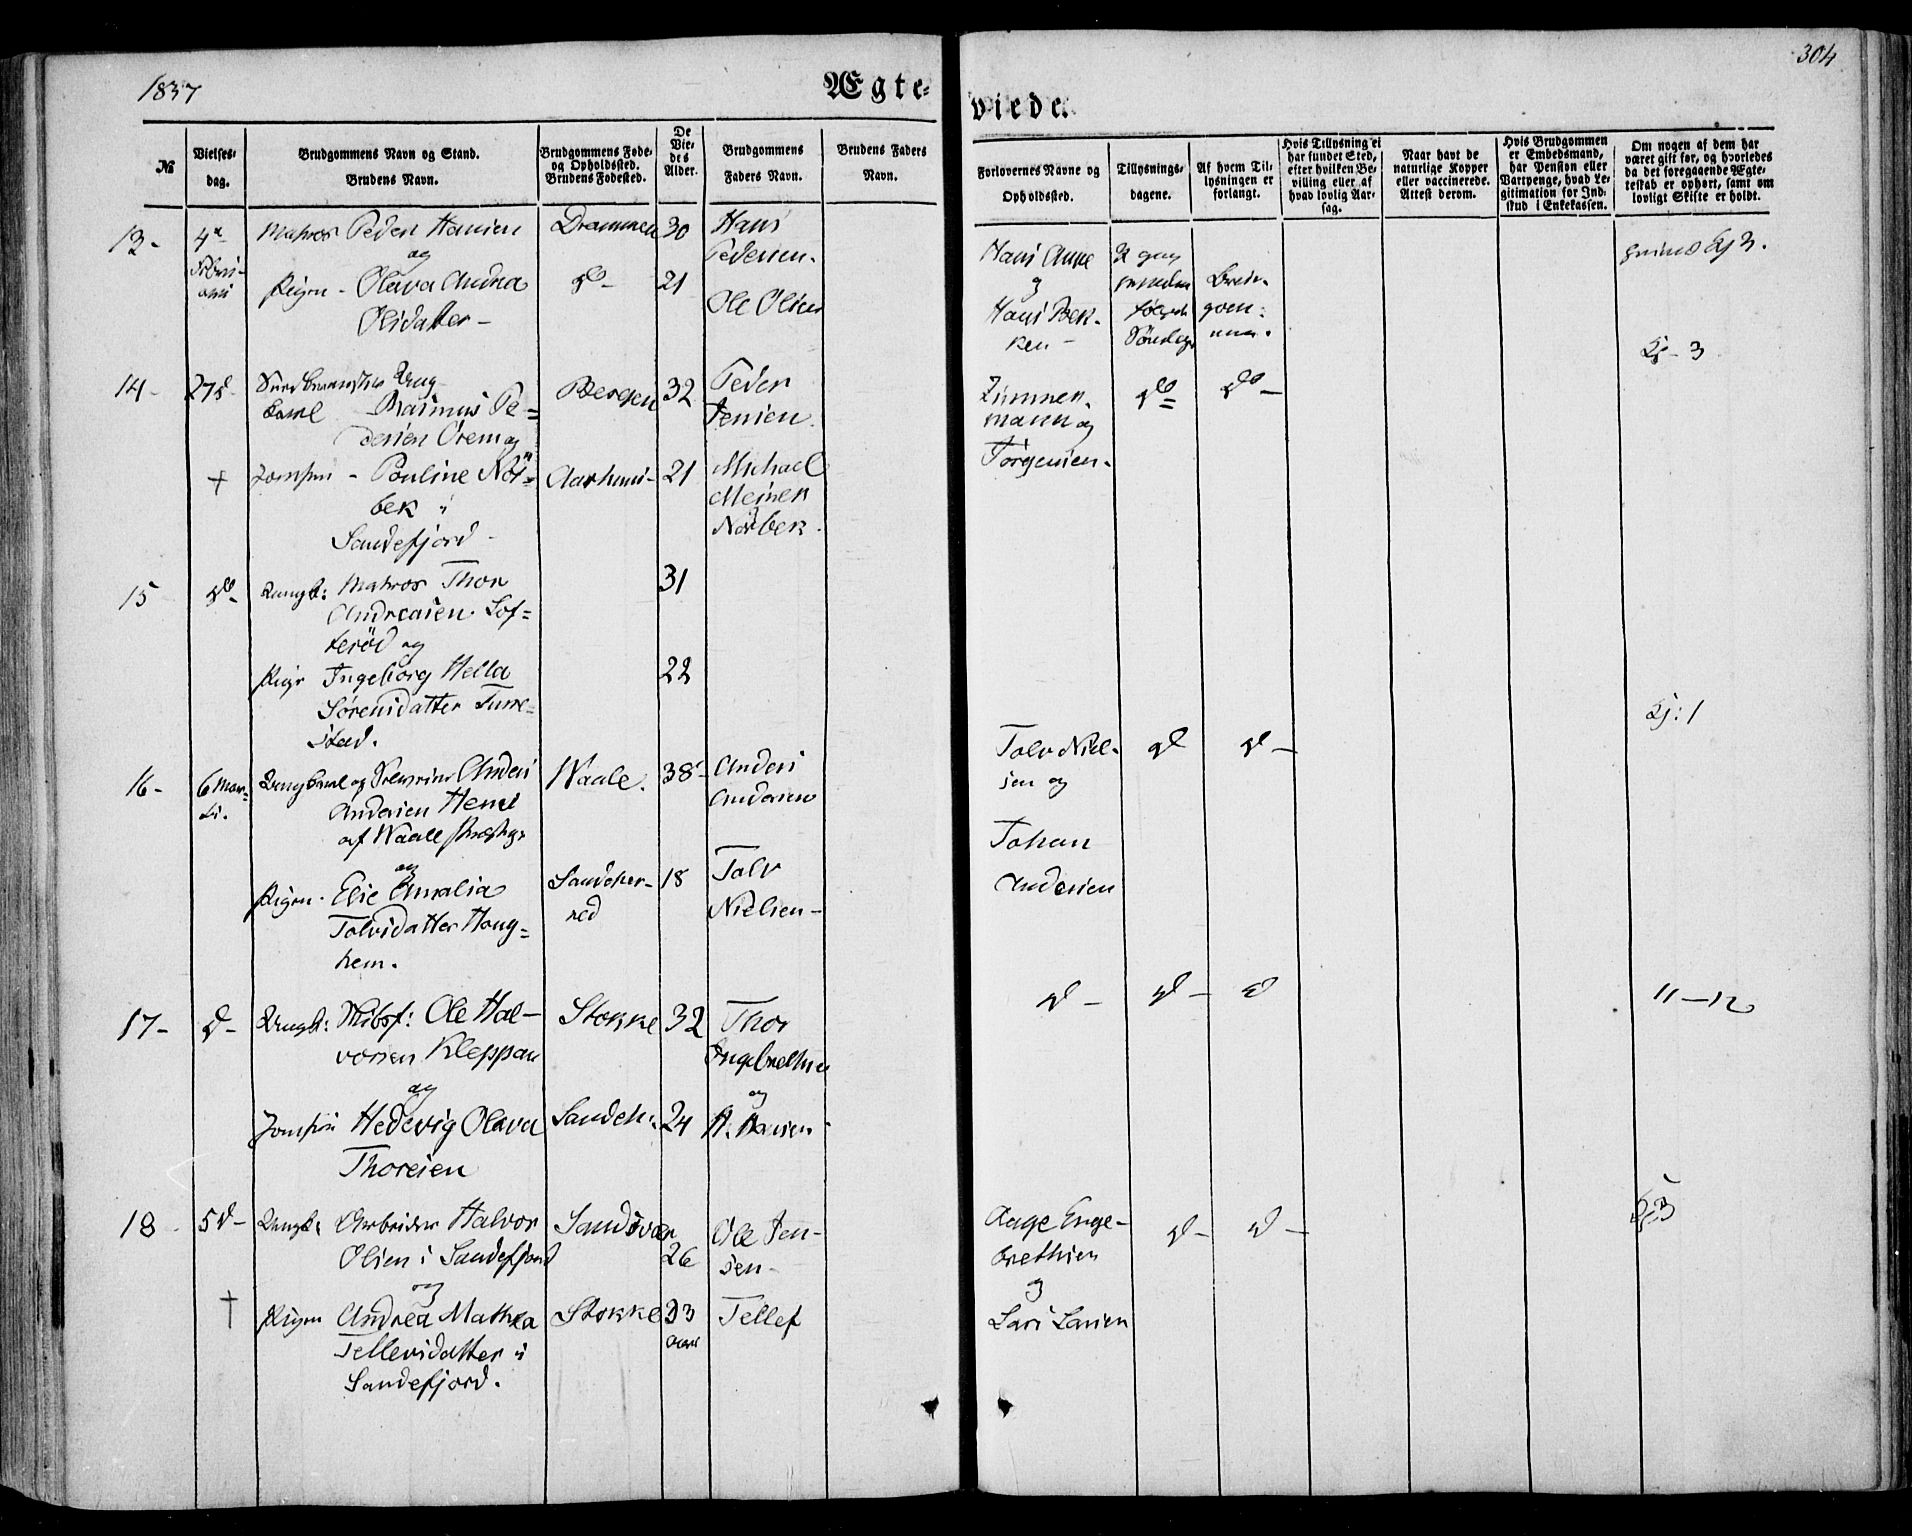 1837
Ægte-
viede.
304
№
Vielses-
dag.
Brudgommens Navn og Stand.
Brudens Navn.
Brudgommens Føde-
og Opholdssted.
Brudens Fødested.
De
Vie-
des
Alder.
Brudgommens
Faders Navn.
Brudens Faders
Navn.
Forlovernes Navne og
Opholdssted.
Tillysnings-
dagene.
Af hvem Til-
lysningen er
forlangt.
Hvis Tillysning ei
har fundet Sted,
efter hvilken Be-
villing eller af
hvad lovlig Aar-
sag.
Naar havt de
naturlige Kopper
eller vaccinerede.
Attest derom.
Hvis Brudgommen
er Embedsmand,
har Pension eller
Vartpenge, hvad Le-
gitimation for Ind-
skud i Enkekassen.
Om nogen af dem har
været gift før, og hvorledes
da det foregaaende Ægte-
teskab er ophørt, samt om
lovligt Skifte er holdt.
13-
4de
Matros Peder Hansen
og
Pigen - Olava Andrea
Olsdatter -
Drammen
do -
30
21
Hans
Pedersen.
Ole Olsen
Hans Aune
og
Hans Bek-
ken -
Søndage
Brud-
gom-
men.
14-
27d
Rasmus Pe=
dersen Orem og
Jomfru - Pauline Nør=
bek i
Sandefjord -
Bergen
Aarhuus -
32
21
Peder
Jensen.
Michael
Meiner
Nørbek.
Zimmer-
mann og
Jørgensen.
do
do -
3
15
do -
Ungk: Matros Thor
Andreasen Sof=
terød og
Pige Ingeborg Hella
Sørensdatter Furre=
stad.
31
22
16-
6 Mar=
ti.
Ungkarl og Anders
Andersen Hem
af Waale
og
Pigen - Else Amalia
Tolvsdatter Houg=
hem.
Waale.
Sandeher-
red
38-
18
Anders
Andersen
Tolv
Nielsen -
Tolv Niel-
sen og
Johan
Andersen
d
d -
Kj: 1
17-
d -
Ungk: Skibsf: Ole Hal-
vorsen Kleppan
og
Jomfru Hedevig Olava
Thoresen
Stokke
Sandeh:
32
24
Thor
Ingebrethsen
og
H. Hansen
d -
d -
d
11-12
18-
5d -
Ungk: Arbeider Halvor
Olsen i Sandefjord
og
Pigen Andrea Mathea
Tellevsdatter i
Sandefjord.
Sandsvær
Stokke
26
33
Aar
Ole Jen-
sen -
Tellef
Aage Enge-
brethsen
og
Lars Larsen
d -
d -